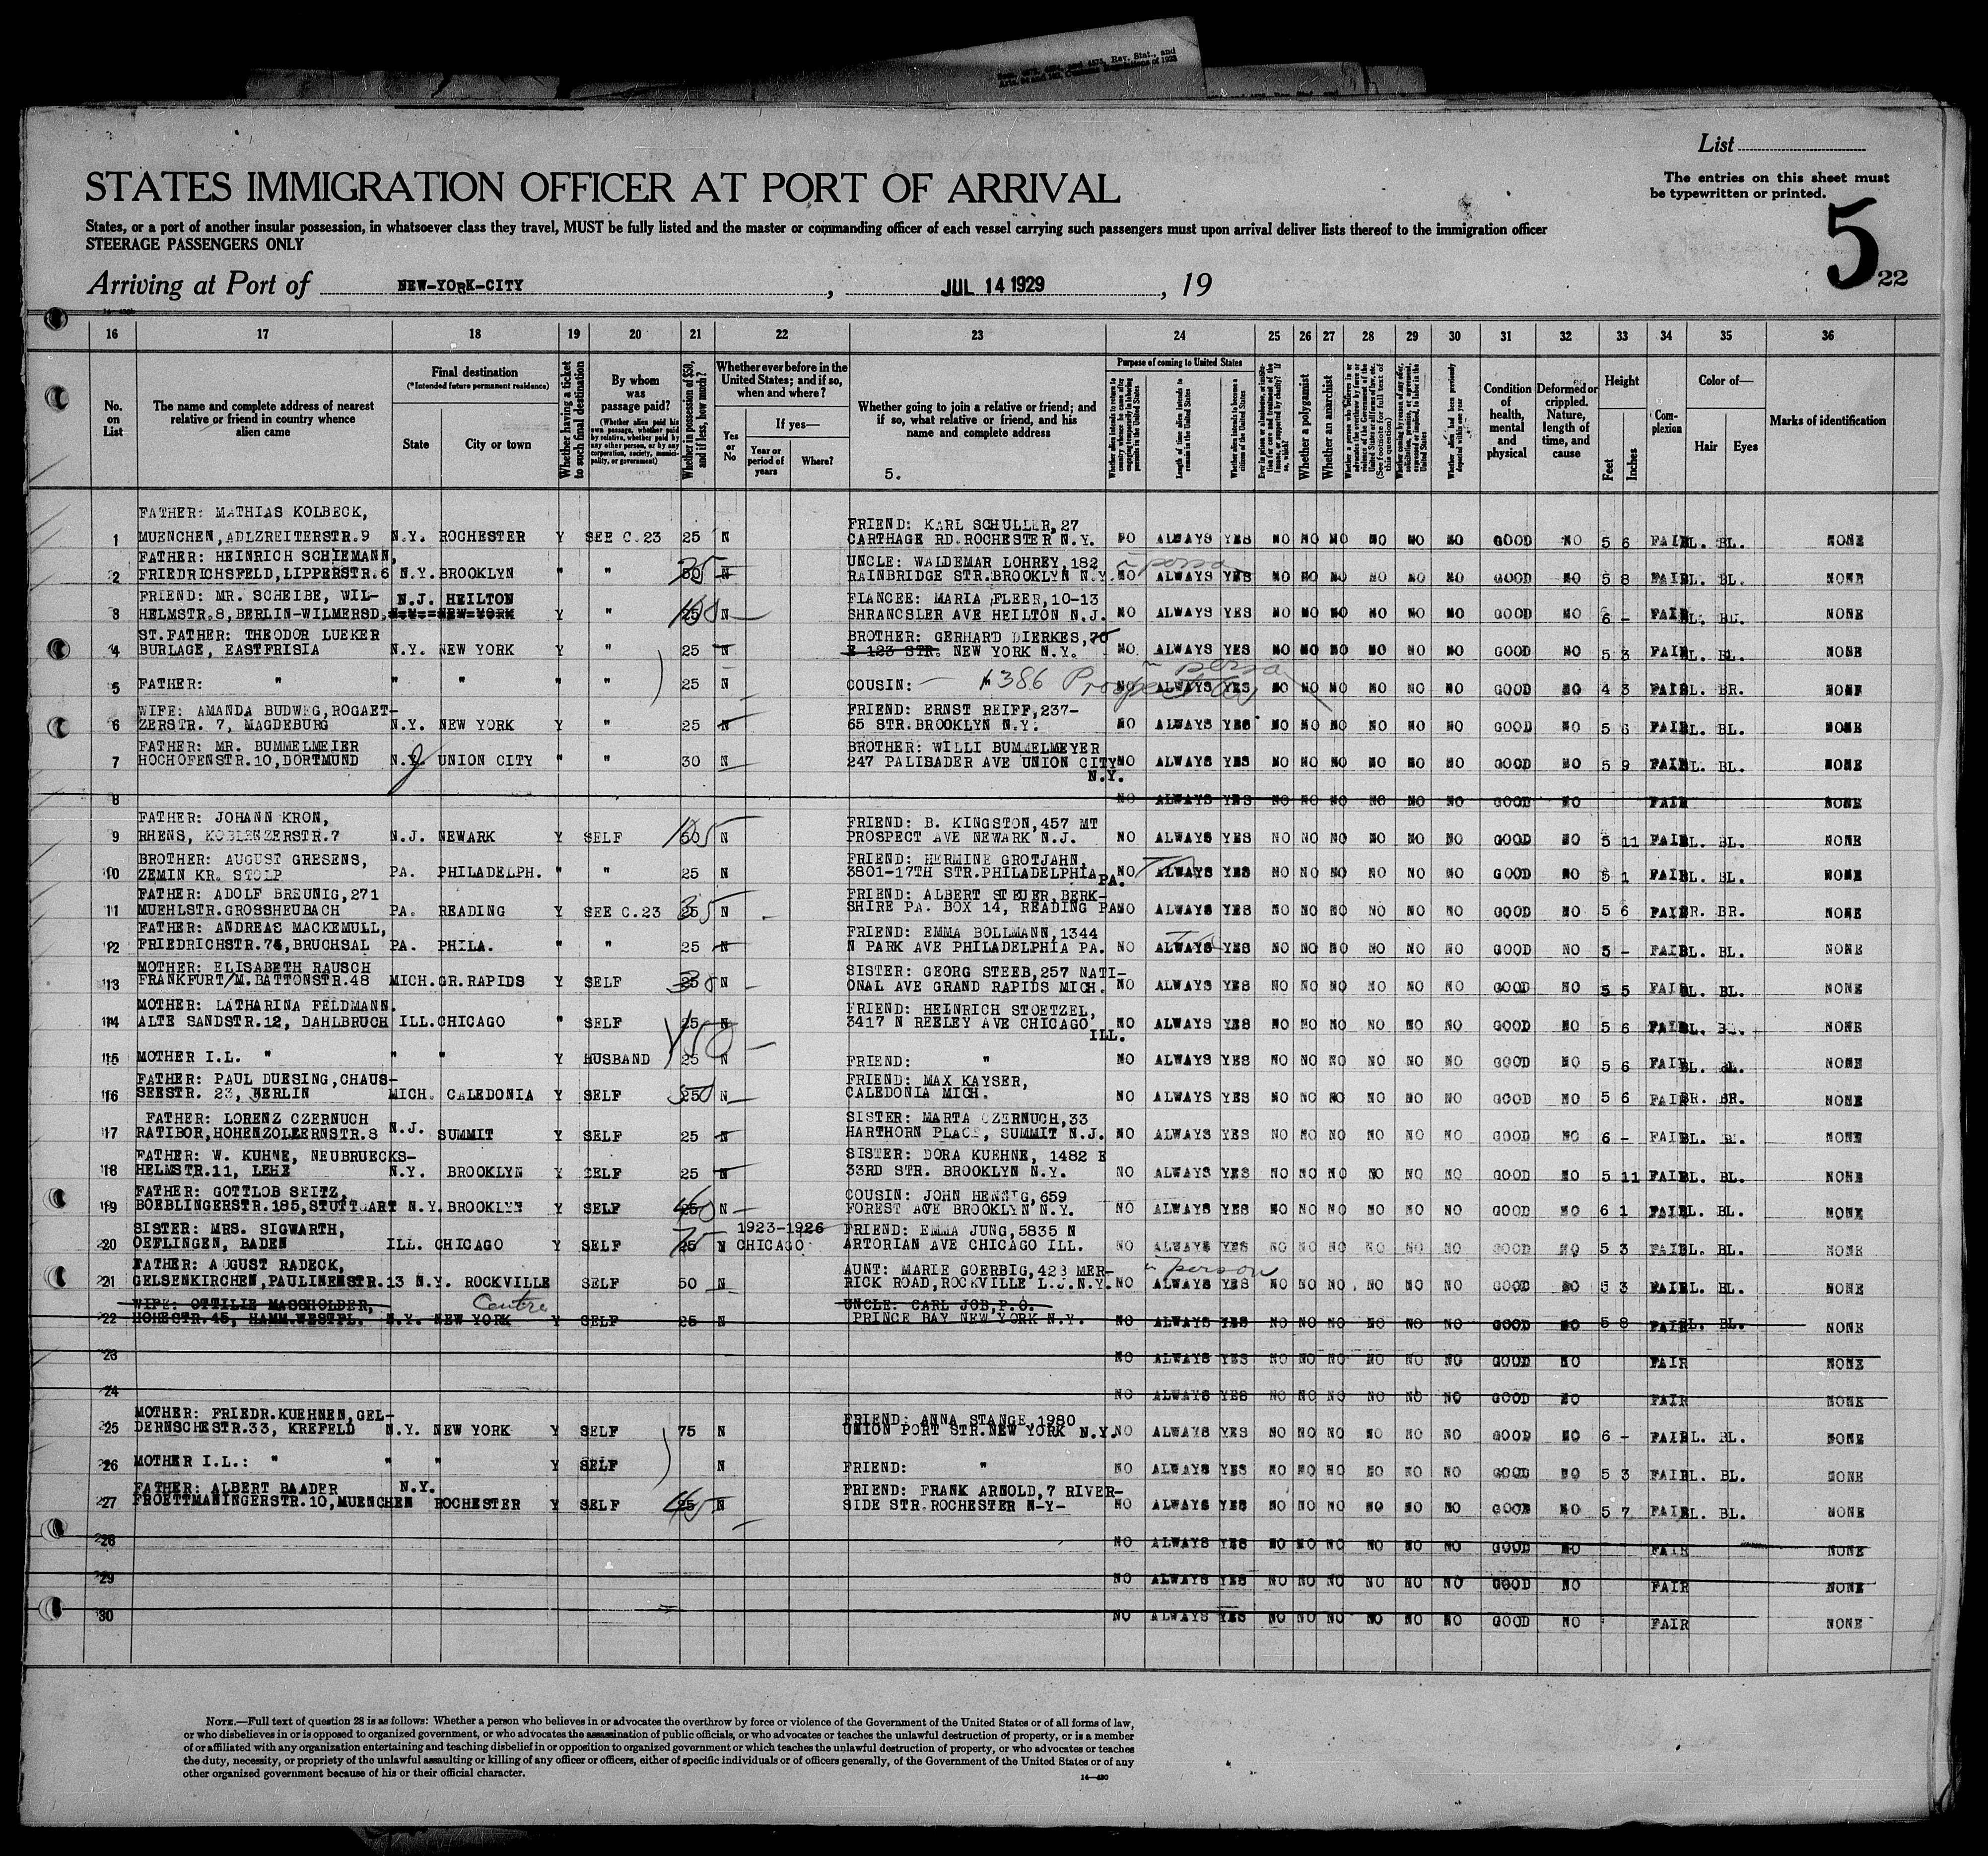 List
The entries on this sheet must
be typewritten or printed.
STATES IMMIGRATION OFFICER AT PORT OF ARRIVAL
5
22
States, or a port of another insular possession, in whatsoever class they travel, MUST be fully listed and the master or commanding officer of each vessel carrying such passengers must upon arrival deliver lists thereof to the immigration officer
STEERAGE PASSENGERS ONLY
Arriving at Port of NEW-YORK-CITY, JUL 14 1929, 19
16 17 18 19 20 21 22 23 24 25 26 27 28 29 30 31 32 33 34 35 36
No. on List
The name and complete address of nearest relative or friend in country whence alien came
Final destination
(*Intended future permanent residence)
State
City or town
Whether having a ticket to such final destination
By whom was passage paid?
(Whether alien paid his own passage, whether paid by relative, whether paid by any other person, or by any corporation, society, municipality, or government)
Whether in possession of $50, and if less, how much?
Whether ever before in the United States; and if so, when and where?
Yes or No
If yes—
Year or period of years
Where?
Whether going to join a relative or friend; and if so, what relative or friend, and his name and complete address
5.
Purpose of coming to United States
Length of time alien intends to remain in the United States
Whether alien intends to become a citizen of the United States
Whether a polygamist
Whether an anarchist
(See footnote for full text of this question)
Condition of health, mental and physical
Deformed or crippled. Nature, length of time, and cause
Height
Feet
Inches
Complexion
Color of—
Hair
Eyes
Marks of identification
FATHER: MATHIAS KOLBECK, FRIEND: KARL SCHULLER, 27
1 MUENCHEN, ADLZREITERSTR.9 N.Y. ROCHESTER Y SEE C.23 25 N CARTHAGE RD.ROCHESTER N.Y. NO ALWAYS YES NO NO NO NO NO NO GOOD NO 5 6 FAIR BL. BL. NONE
FATHER: HEINRICH SCHIEMANN, UNCLE: WALDEMAR LOHREY, 182
2 FRIEDRICHSFELD, LIPPERSTR.6 N.Y. BROOKLYN " " N RAINBRIDGE STR.BROOKLYN N.Y. NO ALWAYS YES NO NO NO NO NO NO GOOD NO 5 8 FAIR BL. BL. NONE
FRIEND: MR. SCHEIBE, WIL- N.J. HEILTON FIANCEE: MARIA FLEER, 10-13
3 HELMSTR.8, BERLIN-WILMERSD. NEW-YORK Y " N SHRANCSLER AVE HEILTON N.J. NO ALWAYS YES NO NO NO NO NO NO GOOD NO 6 - FAIR BL. BL. NONE
ST.FATHER: THEODOR LUEKER BROTHER: GERHARD DIERKES, 70
4 BURLAGE, EASTFRISIA N.Y. NEW YORK Y " 25 N E 123 STR. NEW YORK N.Y. NO ALWAYS YES NO NO NO NO NO NO GOOD NO 5 3 FAIR BL. BL. NONE
5 FATHER: " " " " " 25 N COUSIN: " 1386 Prospect Av NO ALWAYS YES NO NO NO NO NO NO GOOD NO 4 3 FAIR BL. BR. NONE
WIFE: AMANDA BUDWEG, ROGAET- FRIEND: ERNST REIFF, 237-
6 ZERSTR. 7, MAGDEBURG N.Y. NEW YORK Y " 25 N 65 STR.BROOKLYN N.Y. NO ALWAYS YES NO NO NO NO NO NO GOOD NO 5 6 FAIR BL. BL. NONE
FATHER: MR. BUMMELMEIER BROTHER: WILLI BUMMELMEYER
7 HOCHOFENSTR.10, DORTMUND N.Y. J UNION CITY " " 30 N 247 PALIBADER AVE UNION CITY NO ALWAYS YES NO NO NO NO NO NO GOOD NO 5 9 FAIR BL. BL. NONE
N.Y.
8 NO ALWAYS YES NO NO NO NO NO NO GOOD NO FAIR NONE
FATHER: JOHANN KRON, FRIEND: B. KINGSTON, 457 MT
9 RHENS, KOBLENZERSTR.7 N.J. NEWARK Y SELF N PROSPECT AVE NEWARK N.J. NO ALWAYS YES NO NO NO NO NO NO GOOD NO 5 11 FAIR BL. BL. NONE
BROTHER: AUGUST GRESENS, FRIEND: HERMINE GROTJAHN,
10 ZEMIN KR. STOLP PA. PHILADELPH. " " 25 N 3801-17TH STR.PHILADELPHIA PA. NO ALWAYS YES NO NO NO NO NO NO GOOD NO 5 1 FAIR BL. BL. NONE
FATHER: ADOLF BREUNIG, 271 FRIEND: ALBERT STEUER, BERK-
11 MUEHLSTR.GROSSHEUBACH PA. READING Y SEE C.23 25 N SHIRE PA. BOX 14, READING PA NO ALWAYS YES NO NO NO NO NO NO GOOD NO 5 6 FAIR BR. BR. NONE
FATHER: ANDREAS MACKEMULL, FRIEND: EMMA BOLLMANN, 1344
12 FRIEDRICHSTR.74, BRUCHSAL PA. PHILA. " " 25 N N PARK AVE PHILADELPHIA PA. NO ALWAYS YES NO NO NO NO NO NO GOOD NO 5 - FAIR BL. BL. NONE
MOTHER: ELISABETH RAUSCH SISTER: GEORG STEEB, 257 NATI-
13 FRANKFURT/M.BATTONSTR.48 MICH. GR.RAPIDS Y SELF 25 N ONAL AVE GRAND RAPIDS MICH. NO ALWAYS YES NO NO NO NO NO NO GOOD NO 5 5 FAIR BL. BL. NONE
MOTHER: LATHARINA FELDMANN. FRIEND: HEINRICH STOETZEL,
14 ALTE SANDSTR.12, DAHLBRUCH ILL. CHICAGO " SELF 25 N 3417 N REELEY AVE CHICAGO NO ALWAYS YES NO NO NO NO NO NO GOOD NO 5 6 FAIR BL. BL. NONE
ILL.
15 MOTHER I.L. " " " Y HUSBAND 25 N FRIEND: " NO ALWAYS YES NO NO NO NO NO NO GOOD NO 5 6 FAIR BL. BL. NONE
FATHER: PAUL DUESING, CHAUS- FRIEND: MAX KAYSER,
16 SEESTR. 23, BERLIN MICH. CALEDONIA Y SELF N CALEDONIA MICH. NO ALWAYS YES NO NO NO NO NO NO GOOD NO 5 6 FAIR BR. BR. NONE
FATHER: LORENZ CZERNUCH SISTER: MARTA CZERNUCH, 33
17 RATIBOR, HOHENZOLLERNSTR.8 N.J. SUMMIT Y SELF 25 N HARTHORN PLACE, SUMMIT N.J. NO ALWAYS YES NO NO NO NO NO NO GOOD NO 6 - FAIR BL. BL. NONE
FATHER: W. KUHNE, NEUBRUECKS- SISTER: DORA KUEHNE, 1482 E
18 HELMSTR.11, LEHE N.Y. BROOKLYN Y SELF 25 N 33RD STR. BROOKLYN N.Y. NO ALWAYS YES NO NO NO NO NO NO GOOD NO 5 11 FAIR BL. BL. NONE
FATHER: GOTTLOB SEITZ, COUSIN: JOHN HENNIG, 659
19 BOEBLINGERSTR.185, STUTTGART N.Y. BROOKLYN Y SELF N FOREST AVE BROOKLYN N.Y. NO ALWAYS YES NO NO NO NO NO NO GOOD NO 6 1 FAIR BL. BL. NONE
SISTER: MRS. SIGWARTH, 1923-1926 FRIEND: EMMA JUNG, 5835 N
20 OEFLINGEN, BADEN ILL. CHICAGO Y SELF 25 N CHICAGO ARTORIAN AVE CHICAGO ILL. NO ALWAYS YES NO NO NO NO NO NO GOOD NO 5 3 FAIR BL. BL. NONE
FATHER: AUGUST RADECK, AUNT: MARIE GOERBIG, 423 MER- in person
21 GELSENKIRCHEN, PAULINENSTR.13 N.Y. ROCKVILLE Centre SELF 50 N RICK ROAD, ROCKVILLE L.J.N.Y. NO ALWAYS YES NO NO NO NO NO NO GOOD NO 5 3 FAIR BL. BL. NONE
WIFE: OTTILIE MASSHOLDER, UNCLE: CARL JOB, P.O.
22 HOHESTR.45, HAMM.WESTPL. N.Y. NEW YORK Y SELF 25 N PRINCE BAY NEW YORK N.Y. NO ALWAYS YES NO NO NO NO NO NO GOOD NO 5 8 FAIR BL. BL. NONE
23 NO ALWAYS YES NO NO NO NO NO NO GOOD NO FAIR NONE
24 NO ALWAYS YES NO NO NO NO NO NO GOOD NO FAIR NONE
MOTHER: FRIEDR.KUEHNEN, GEL- FRIEND: ANNA STANGE, 1980
25 DERNSCHESTR.33, KREFELD N.Y. NEW YORK Y SELF 75 N UNION PORT STR.NEW YORK N.Y. NO ALWAYS YES NO NO NO NO NO NO GOOD NO 6 - FAIR BL. BL. NONE
26 MOTHER I.L.: " " " Y SELF N FRIEND: " NO ALWAYS YES NO NO NO NO NO NO GOOD NO 5 3 FAIR BL. BL. NONE
FATHER: ALBERT BAADER N.Y. FRIEND: FRANK ARNOLD, 7 RIVER-
27 FROETTMANINGERSTR.10, MUENCHEN ROCHESTER Y SELF 25 N SIDE STR.ROCHESTER N-Y- NO ALWAYS YES NO NO NO NO NO NO GOOD NO 5 7 FAIR BL. BL. NONE
28 NO ALWAYS YES NO NO NO NO NO NO GOOD NO FAIR NONE
29 NO ALWAYS YES NO NO NO NO NO NO GOOD NO FAIR NONE
30 NO ALWAYS YES NO NO NO NO NO NO GOOD NO FAIR NONE
NOTE.—Full text of question 28 is as follows: Whether a person who believes in or advocates the overthrow by force or violence of the Government of the United States or of all forms of law,
or who disbelieves in or is opposed to organized government, or who advocates the assassination of public officials, or who advocates or teaches the unlawful destruction of property, or is a member
of or affiliated with any organization entertaining and teaching disbelief in or opposition to organized government or which teaches the unlawful destruction of property, or who advocates or teaches
the duty, necessity, or propriety of the unlawful assaulting or killing of any officer or officers, either of specific individuals or of officers generally, of the Government of the United States or of any
other organized government because of his or their official character.
14—430